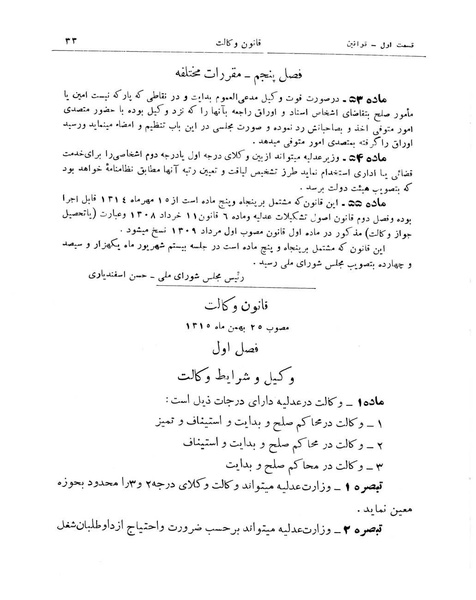 قسمت اول - قوانین قانون وکالت ۳۳
فصل پنجم - مقررات مختلفه
ماده ۵۳ - درصورت فوت وکیل مدعی‌العموم بدایت و در نقاطی که پارکه نیست امین یا
مأمور صلح بتقاضای اشخاص اسناد و اوراق راجعه بآنها را که نزد وکیل بوده با حضور متصدی
امور متوفی اخذ و بصاحبانش رد نموده و صورت مجلسی در این باب تنظیم و امضاء مینماید ورسید
اوراق را گرفته بمتصدی امور متوفی میدهد.
ماده ۵۴ - وزیرعدلیه میتواند ازبین وکلای درجه اول یادرجه دوم اشخاصی را برای‌خدمت
قضائی یا اداری استخدام نماید طرز تشخیص لیاقت و تعیین رتبه آنها مطابق نظامنامهٔ خواهد بود
که بتصویب هیئت دولت برسد.
ماده ۵۵ - این قانون‌که مشتمل بر پنجاه وپنج ماده است از ۱۵ مهرماه ۱۳۱۴ قابل اجرا
بوده وفصل دوم قانون اصول تشکیلات عدلیه وماده ۶ قانون ۱۱ خرداد ۱۳۰۸ وعبارت (باتحصیل
جواز وکالت) مذکور در ماده اول قانون مصوب اول مرداد ۱۳۰۹ نسخ میشود.
این قانون که مشتمل برپنجاه و پنج ماده است در جلسه بیستم شهریور ماه یکهزار و سیصد
و چهارده بتصویب مجلس شورای ملی رسید.
رئیس مجلس شورای ملی - حسن اسفندیاری
قانون وکالت
مصوب ۲۵ بهمن ماه ۱۳۱۵
فصل اول
وکیل و شرایط وکالت
ماده ۱ - وکالت درعدلیه دارای درجات ذیل است:
۱ - وکالت در محاکم صلح و بدایت و استیناف و تمیز
۲ - وکالت در محاکم صلح و بدایت و استیناف
۳ - وکالت در محاکم صلح و بدایت
تبصره ۱ - وزارت‌عدلیه میتواند وکالت وکلای درجه ۲ و ۳ را محدود بحوزه
معین نماید.
تبصره ۲ - وزارت‌عدلیه میتواند برحسب ضرورت واحتیاج ازداوطلبان‌شغل